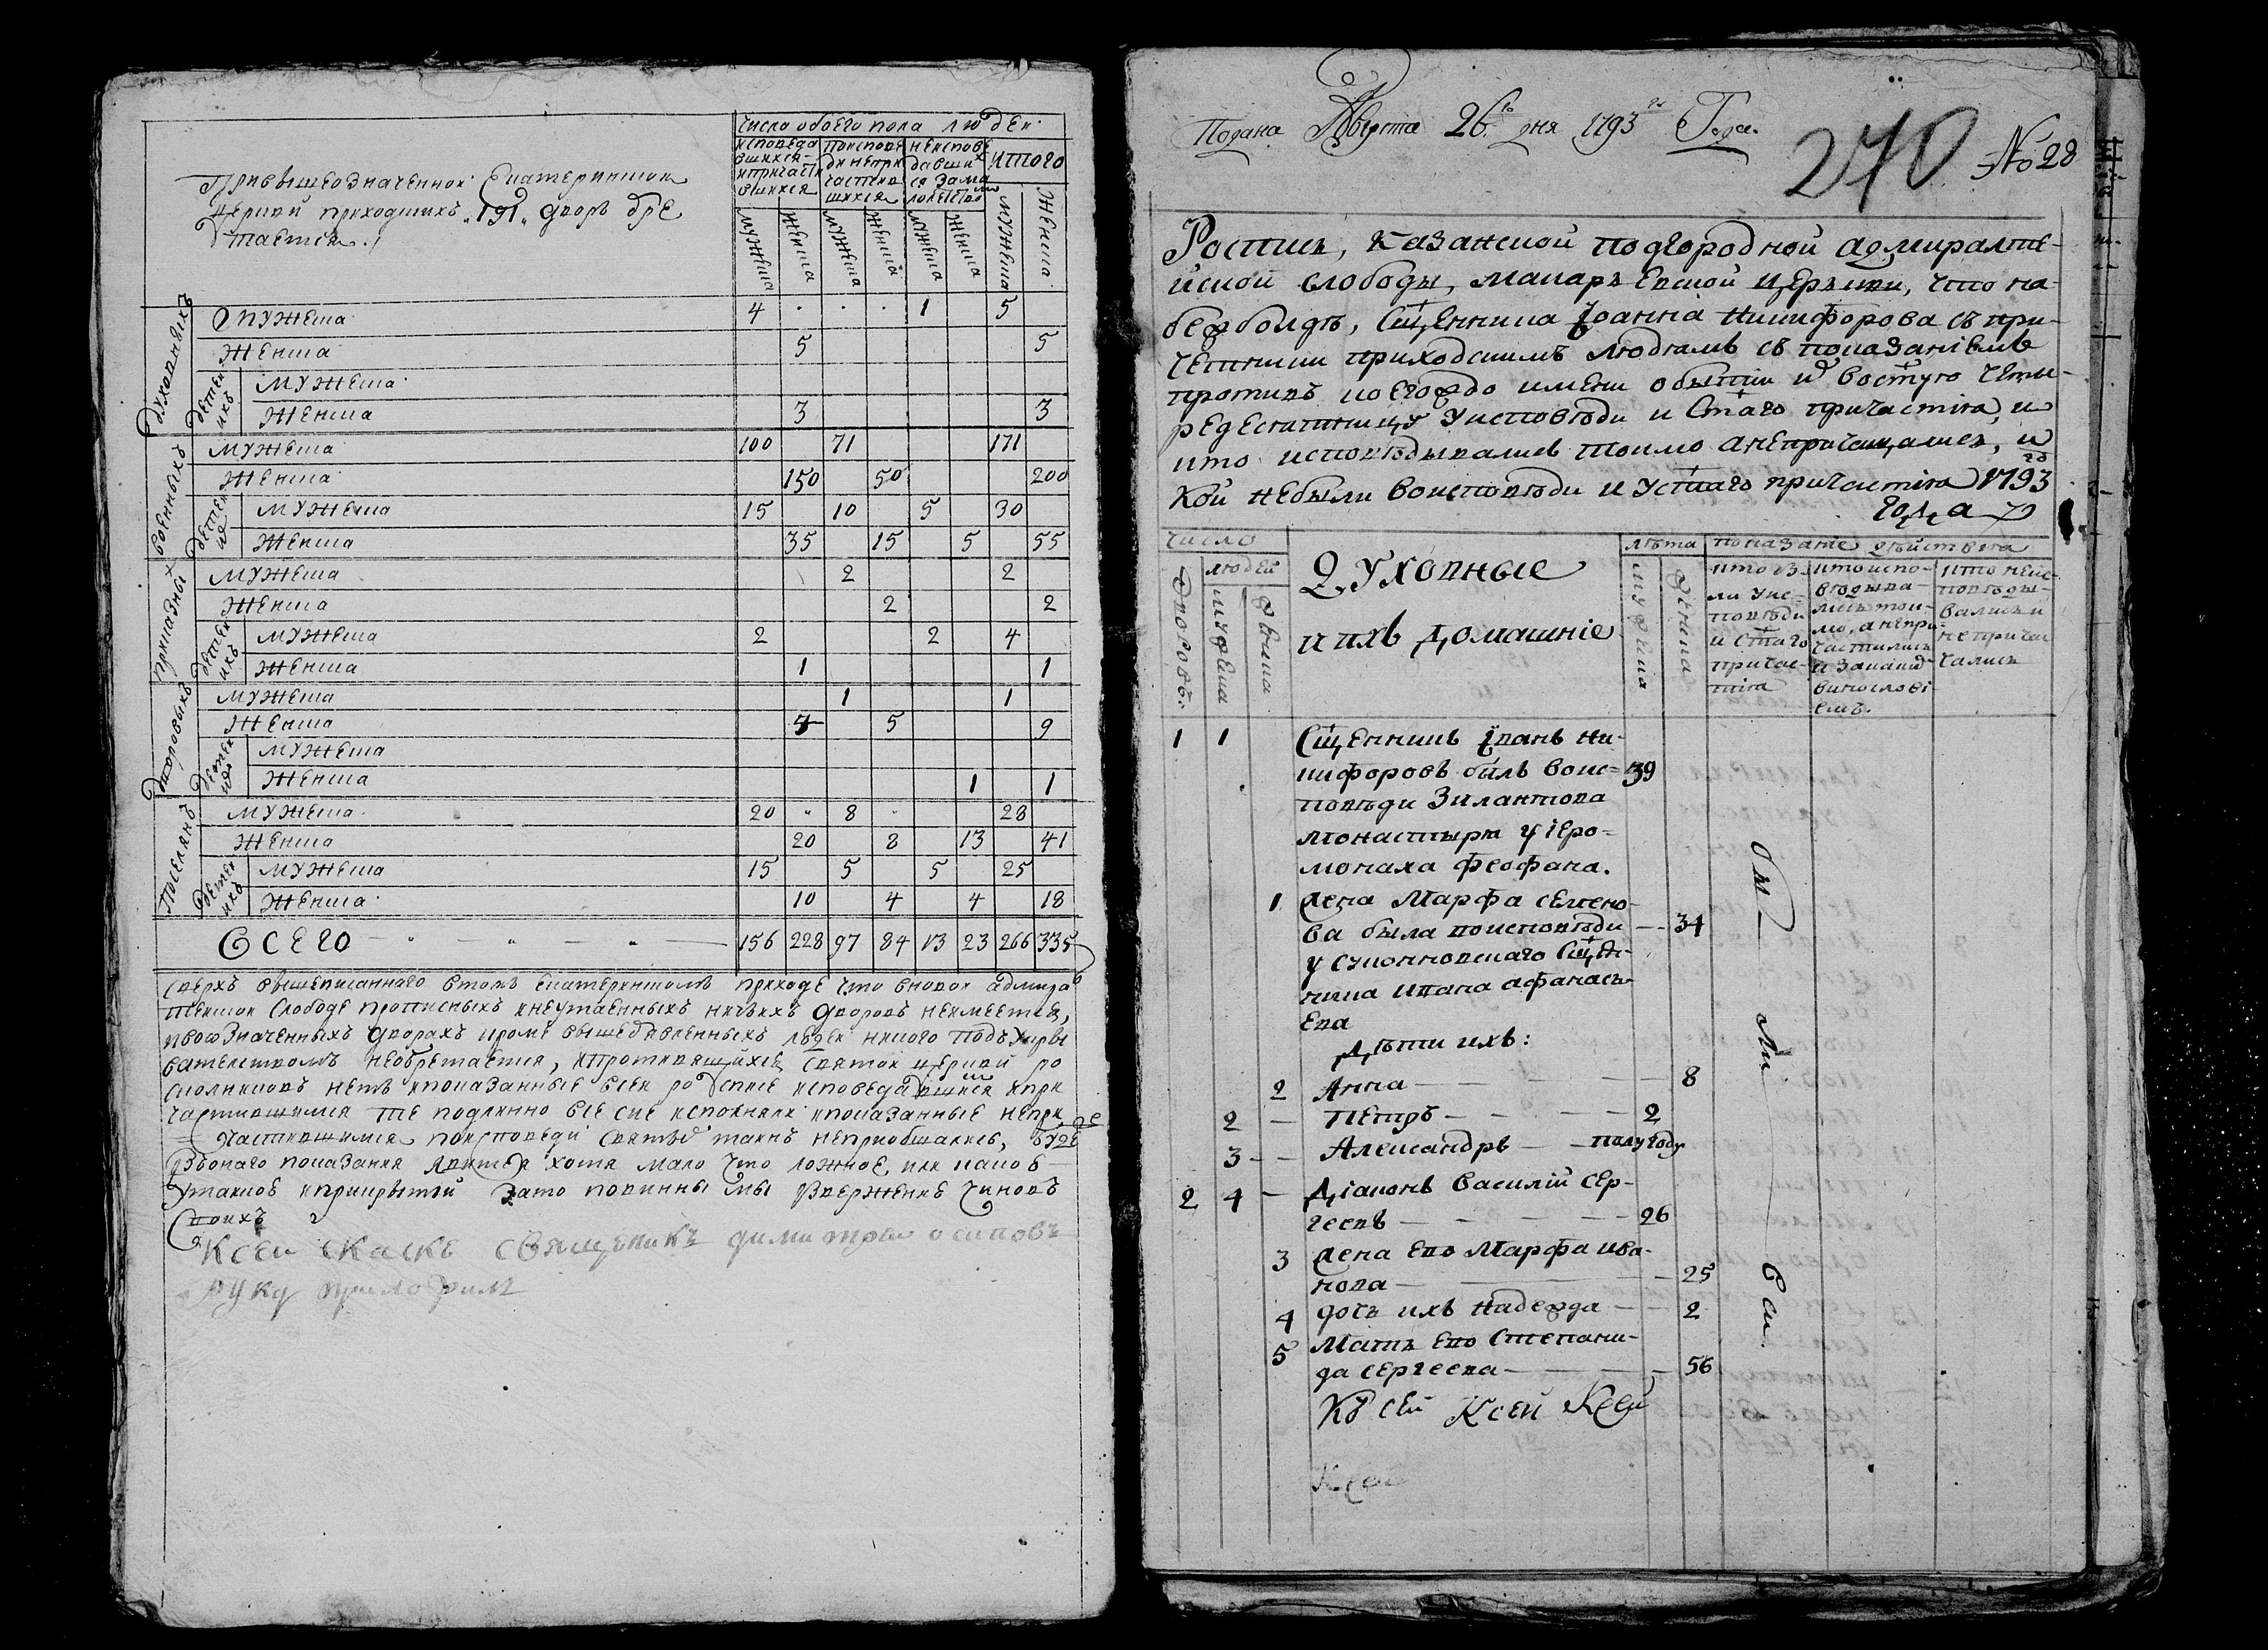 При вышеозначенной Екатерининской
церкви приходскихъ „191„ дворъ обре
тается.
число обоего пола людей
исповеда
вшихся
и причасти
вшихся
по испове
ди непри
частив
шихся
не испове
давших
ся за мало
летством
итого
мужеска
женска
мужеска
женска
мужеска
женска
мужеска
женска
духовныхъ
мужеска 4 . . . 1 5
женска 5 5
детей ихъ
мужеска
женска 3 3
военныхъ
мужеска 100 71 171
женска 150 50 200
детей их
мужеска 15 10 5 30
женска 35 15 5 55
приказных
мужеска 2 2
женска 2 2
детей ихъ
мужеска 2 2 4
женска 1 1
дворовыхъ
мужеска 1 1
женска 4 5 9
детей ихъ
мужеска
женска 1 1
поселянъ
мужеска 20 8 28
женска 20 8 13 41
детей ихъ
мужеска 15 5 5 25
женска 10 4 4 18
всего 156 228 97 84 13 23 266 335
сверхъ вышеписанного в томъ Екатерининскомъ приходе что в новой адмирал
тейской слободе прописныхъ и неутаенныхъ ничьихъ дворовъ неимеется,
и во означенныхъ дворахъ кроме вышеявленныхъ людей никого под укры
вательствомъ необретается, и противящихся святой церкви ро
скольниковъ нетъ и показанные в сей росписе исповедавшимися и при
частившимися те подлинно все сие исполняли и показанные непри
частившимися по исповеди святых таинъ неприобщались, буде
из оного показания явится хотя мало что ложное или какое
утайкое и прикрытой за то повинны мы извержение чиновъ
своихъ
К сей скаске священикъ димитрей осиповъ
руку приложилъ
Подана Августа 26го дня 1793го Года.
270
№ 28
Роспись, казанской подгородной адмиралте-
йской слободы, макарьевской церькви, что на-
безболде, Сщенника Иоанна Никифорова съ при-
четники приходскимъ людямъ съ показаниемъ
противъ коегождо имени о бытии и в святую четы-
редесятницу у исповеди и стаго причастия, и
кто исповедывались токмо а непричащались, и
кои небыли во исповеди и у стаго причастия 1793го
года
число
дворовъ
людей
мужеска
женска
Духовные
и ихъ домашние
лета
мужеска
женска
показание действия
кто бы-
ли у ис-
поведи
и стаго
причас-
тия
кто испо-
ведыва-
лись ток-
мо, а непри-
частились
и за какид
винословi
емъ.
кто неис-
поведы-
вались и
не прича
чались
1 1 Сщенникъ Иванъ Ни-
кифоровъ былъ во ис- 39
поведи Зилантова
монастыря у iеро-
монаха Феофана.
1 жена Марфа семено-
ва была во исповеди 34
у смоленскаго Сщен-
ника Ивана афанась
ева
Дети ихъ:
2 Анна 8
2 Петръ 2
3 Александръ полугоду
2 4 Дiаконъ Василiй Сер-
геевъ 26
3 жена ево Марфа ива-
нова 25
4 дочь ихъ надежда 2
5 Мать ево Степани-
да сергеева 56
были вси.
Къ сей Ксей Ксей
Ксей